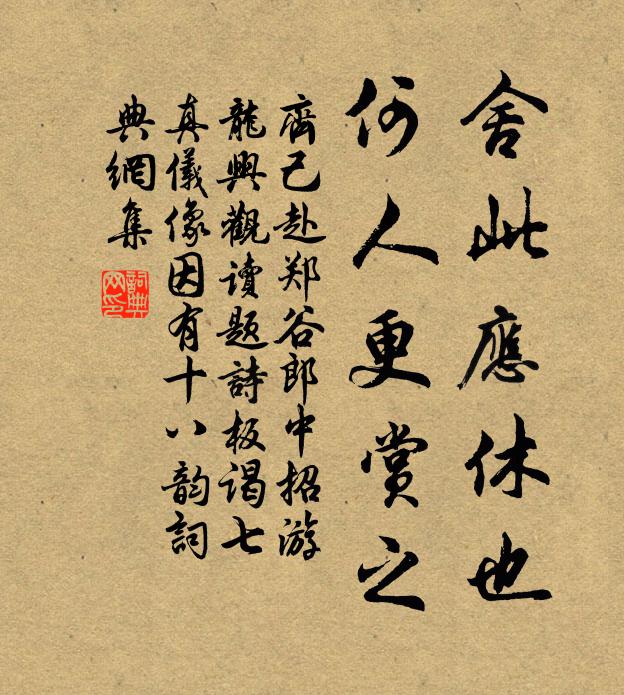 舍此應休也
何人更賞之
齊己赴郑谷郎中招游
龍興觀讀題詩板謁七
真儀像因有十八韵詞
典網集
詞典
网印